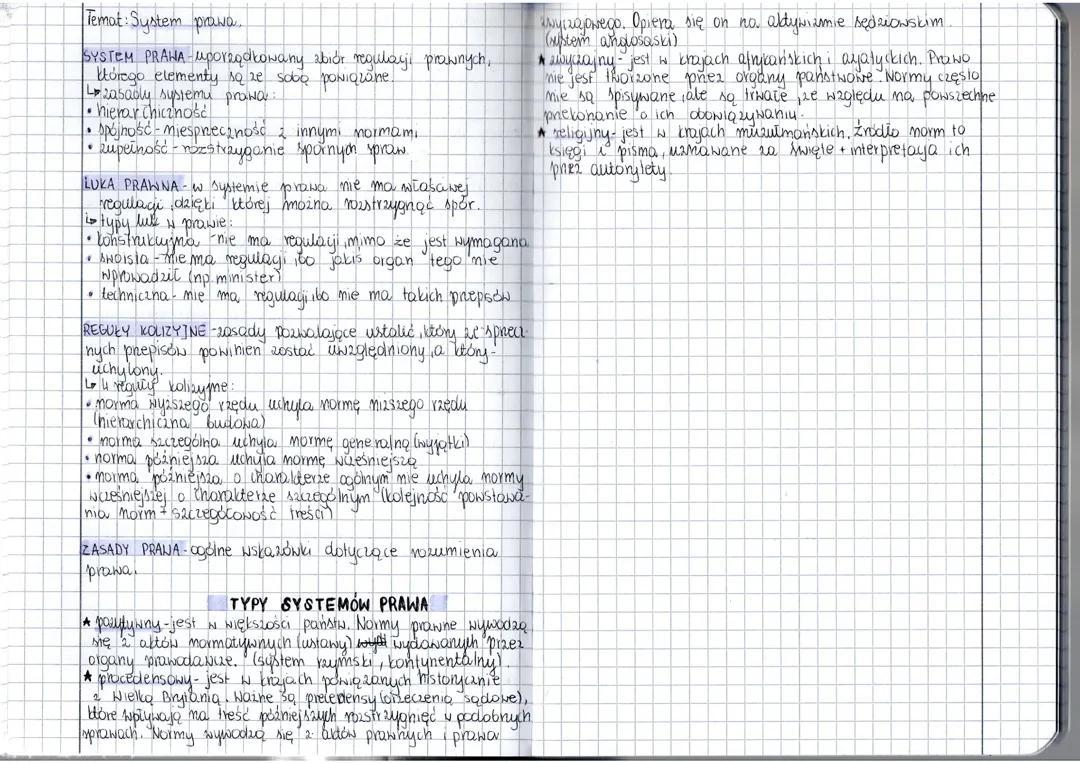 Temat: System prawa.
SYSTEM PRAWA - uporządkowany zbiór regulacji prawnych,
którego elementy są ze sobą powiązane.
↳ zasady systemu prawa:
• hierarchiczność
• spójność - niesprzeczność z innymi normami
• zupełność - rozstrzyganie spornych spraw
LUKA PRAWNA - w systemie prawa nie ma właściwej
regulacji, dzięki której można rozstrzygnąć spór.
↳ typy luk w prawie:
• konstrukcyjna - nie ma regulacji, mimo że jest wymagana
• swoista - nie ma regulacji, bo jakiś organ tego nie
wprowadził (np. minister)
• techniczna - nie ma regulacji, bo nie ma takich przepisów
REGUŁY KOLIZYJNE - zasady pozwalające ustalić, który ze sprzecz-
nych przepisów powinien zostać uwzględniony, a który -
uchylony.
↳ 4 reguły kolizyjne:
• norma wyższego rzędu uchyla normę niższego rzędu
(hierarchiczna budowa)
• norma szczególna uchyla normę generalną (wyjątki)
• norma późniejsza uchyla normę wcześniejszą
• norma późniejsza o charakterze ogólnym nie uchyla normy
wcześniejszej o charakterze szczególnym (kolejność powstawa-
nia norm + szczegółowość treści)
ZASADY PRAWA - ogólne wskazówki dotyczące rozumienia
prawa.
TYPY SYSTEMÓW PRAWA
★ pozytywny - jest w większości państw. Normy prawne wywodzą
się z aktów normatywnych (ustawy) wydawanych przez
organy prawodawcze. (system rzymski, kontynentalny).
★ precedensowy - jest w krajach powiązanych historycznie
z Wielką Brytanią. Ważne są precedensy (orzeczenia sądowe),
które wpływają na treść późniejszych rozstrzygnięć w podobnych
sprawach. Normy wywodzą się z aktów prawnych i prawa
zwyczajowego. Opiera się on na aktywizmie sędziowskim.
(system anglosaski)
★ zwyczajny - jest w krajach afrykańskich i azjatyckich. Prawo
nie jest tworzone przez organy państwowe. Normy często
nie są spisywane, ale są trwałe, ze względu na powszechne
przekonanie o ich obowiązywaniu.
★ religijny - jest w krajach muzułmańskich. Źródło norm to
księgi i pisma, uznawane za święte + interpretacja ich
przez autorytety.